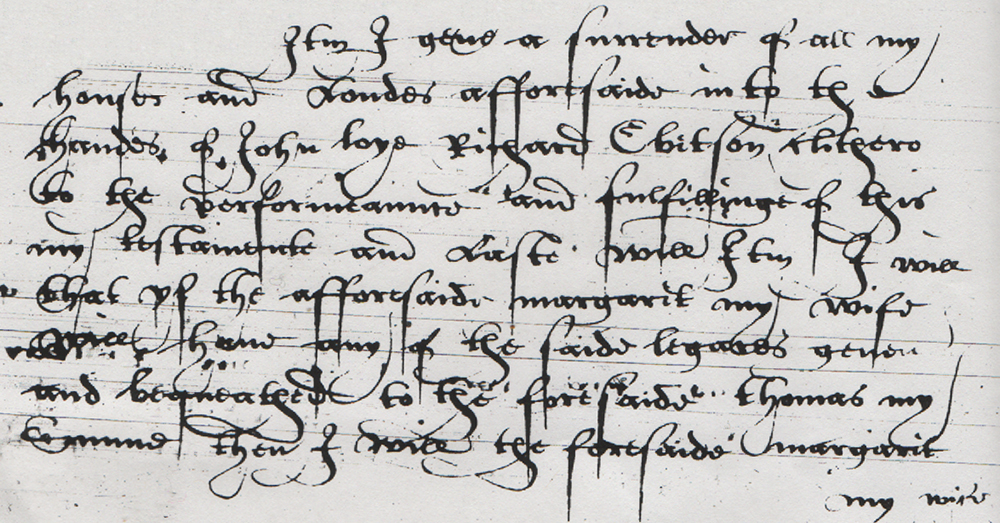 Itm I geve a surrender of all my
houses and Londes afforesaide into the
handes of John loye Richard Ebitson Clithero
to the performeaunce and fulfillinge of this
my testamente and Laste will Itm I will
that yf the afforesaide margarit my wife
will have any of the saide legaces geven
and bequeathed to the foresaide Thomas my
Sonne then I will the foresaide margarit
my wife